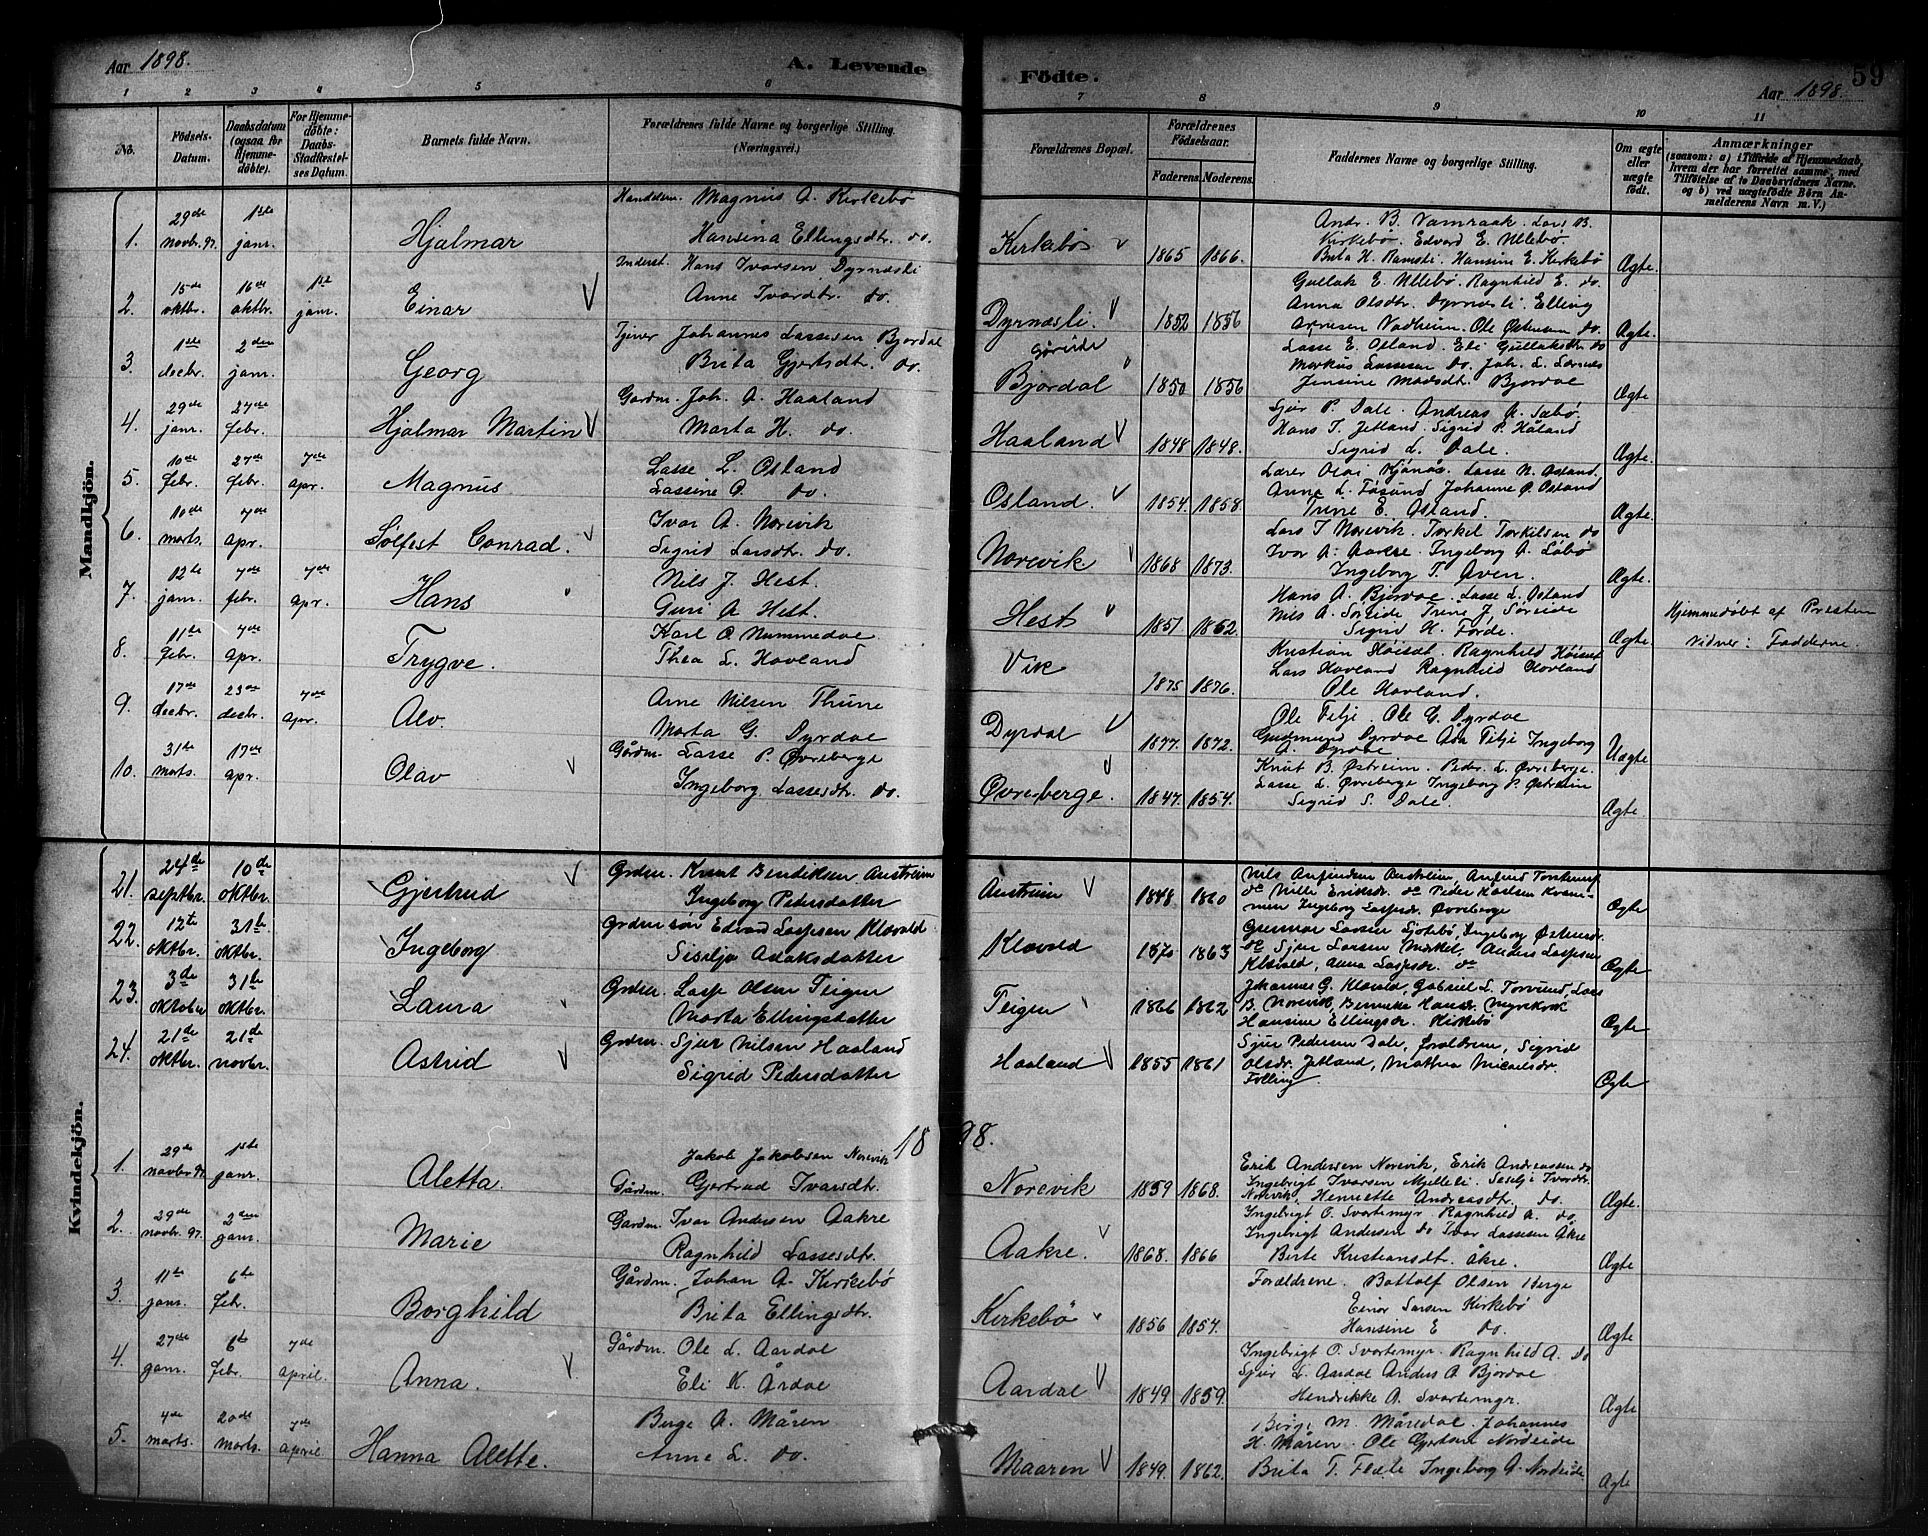 Aar 1898.
A. Levende Födte.
59
Aar 1898.
1 2 3 4 5 6 7 8 9 10 11
No.
Födsels-Datum.
Daabsdatum (ogsaa for Hjemme-döbte).
For Hjemme-döbte: Daabs-Stadfæstel-ses Datum.
Barnets fulde Navn.
Forældrenes fulde Navne og borgerlige Stilling. (Næringsvei.)
Forældrenes Bopæl.
Forældrenes Födselsaar.
Faderens. Moderens.
Faddernes Navne og borgerlige Stilling.
Om ægte eller uægte födt.
Anmærkninger
(saasom: a) i Tilfælde af Hjemmedaab, hvem der har forrettet samme, med Tilföielse af to Daabsvidners Navne. og b) ved uægtefödte Börn An-melderens Navn m. V.)
Mandkjön.
1. 29de novbr. 97. 1ste janr. Hjalmar Magnus A. Kirkebö
Hansina Ellingsdtr. do. Kirkebö 1865 1866. Andr. B. Vamraak. Lars B.
Kirkebø. Edvard E. Ullebø.
Brita H. Ramsli. Hansine E. Kirkebö Ægte.
2. 15de oktbr. 16de oktbr. 1ste janr. Einar Inderst. Hans Ivarsen Dyrnæsli
Anne Ivardtr. do. Dyrnæsli. 1852 1856 Gullak E. Ullebø. Ragnhild E. do.
Anna Olsdtr. Dyrnæsli. Elling
Arnesen Vadheim. Ole Østerem do. Ægte.
3. 1ste decbr. 2den janr. Georg Johannes Lassesen Bjordal
Brita Gjertsdtr. do. Bjordal 1850 1856 Lasse E. Osland. Eli Gullaksdtr do
Markus Lassesen do. Joh. L.
Jensine Madsdt. Bjordal Ægte
4. 29de janr. 27de febr. Hjalmar Martin Gardm. Joh. A. Haaland
Marta H. do. Haaland 1848 1848. Sjur P. Dale. Andreas A. Sæbø.
Hans T. Jetland. Sigrid P. Håland
Sigrid L. Dale. Ægte.
5. 10de febr. 27de febr. 7de apr. Magnus Lasse L. Osland
Lassine O. do. Osland. 1854. 1858. Lærer Olai Hjønås. Lasse N. Osland.
Anna L. Tøsund Johanne O. Osland
Trine E. Osland. Ægte.
6. 10de marts. 7de apr. Solfest Conrad. Ivar A. Norevik
Sigrid Larsdtr. do. Norevik 1868 1873. Lars I Norevik. Torkel Torkelsen do
Ivar A. Aakre. Ingeborg A. Løbø
Ingeborg T. Øven. Ægte.
7. 12te janr. 7de febr. 7de apr. Hans Nils J. Hest.
Guri A. Hest. Hest 1851 1862. Hans A. Bjordal. Lasse L. Osland
Nils A. Søreide Trine J. Søreide
Sigrid H. Førde. Ægte Hjemmedøbt af Presten
Vidner: Fadderne.
8. 11te febr. 7de apr. Trygve. Karl O. Nummedal.
Thea L. Hovland Vik 1875 1876. Kristian Høisæt. Ragnhild Høisæt
Lars Hovland Ragnhild Hovland
Ole Hovland.
9. 17de decbr. 23de decbr. 7de apr. Alv. Arne Nilsen Thune
Marta G. Dyrdal Dyrdal 1877. 1872. Ole Tilje. Ole G. Dyrdal
Gudmund Dyrdal Åsa Tilje Ingeborg
A. Dyrdal Uægte
10. 31te marts. 17de apr. Olav Gårdm. Lasse P. Øvreberge
Ingeborg Lassesdtr. do. Øvreberge. 1847. 1854. Knut B. Østreim. Peder L. Øvreberge.
Lasse L. Øvreberge Ingeborg P. Østreim
Sigrid S. Dale. Ægte
Kvindekjön.
21. 24de septbr. 10de oktbr. Gjertrud Grdm. Knut Bendiksen Austreim
Ingeborg Pedersdatter Austreim 1848 1860 Nils Anfindsen Austreim,
do Nille Eriksdr. do Peder Karlsen
Ingeborg Lassesdr. Øvreberge Ægte
22. 12te oktbr. 31te oktbr. Ingeborg Grdmsøn Edvard Laspsen Klævold
Siselja Adaksdatter Klævold 1870 1863 Gunnar Larsen Sjøtebø Ingeborg
do Sjur Larsen Mirkel, Anders Laspsen
Klævold, Anna Laspsdr. do Ægte
23. 3de oktober 31te oktbr. Laura Grdm. Lasse Olsen Teigen
Marta Ellingsdatter Teigen 1866 1862 Johannes G. Klævold, Gabriel L. Torvund, Lars
B. Norevik, Hansdr. Myrkvok
Hansine Ellingsdr. Kirkebö Ægte
24. 21de oktbr. 21de novbr. Astrid Grdm. Sjur Nilsen Haaland
Sigrid Pedersdatter Haaland 1855 1861 Sjur Pedersen Dale, forældrene, Sigrid
Olsdr. Jetland, Mathea Micaelsdr.
Folling. Ægte
1898.
1. 29de novbr 97. 1ste janr. Aletta. Jakob Jakobsen Norevik
Gårdm. Gjertrud Ivarsdtr. Norevik 1859 1868. Erik Andersen Norevik, Erik Andreassen do
Ingebrigt Ivarsen Mjelleli. Seselje Ivardtr.
Norevik, Henriette Andreasdtr. do. Ægte.
2. 29de novbr. 97. 2den janr. Marie Gardm. Ivar Andersen Aakre
Ragnhild Lassesdtr. Aakre. 1868. 1866 Ingebrigt O. Svartemyr Ragnhild A. do.
Ingebrigt Andersen do Ivar Lassesen Åkre
Berte Kristiansdt. Åkre. Ægte
3. 11te janr. 6te febr. Borghild Gårdm. Johan A. Kirkebö
Brita Ellingsdtr. Kirkebö 1856 1854. Forældrene. Bottolf Olsen Berge
Einar Larsen Kirkebö
Hansine E do. Ægte
4. 27de janr. 6te febr. 7de april. Anna. Gårdm. Ole L. Aardal
Eli K. Årdal Aardal 1849 1859. Ingebrigt O. Svartemyr. Ragnhild A. do
Sjur L. Aardal Anders A Bjordal
Hendrikke A. Svartemyr. Ægte
5. 4de marts. 20de marts. 7de april. Hanna Alette. Berge A. Måren
Anne L. do. Maaren 1849. 1862. Børge M. Måredal. Johannes
H. Måren. Ole Gjertsen Nordeide
Brita T. Flæte Ingeborg A. Nordeide. Ægte